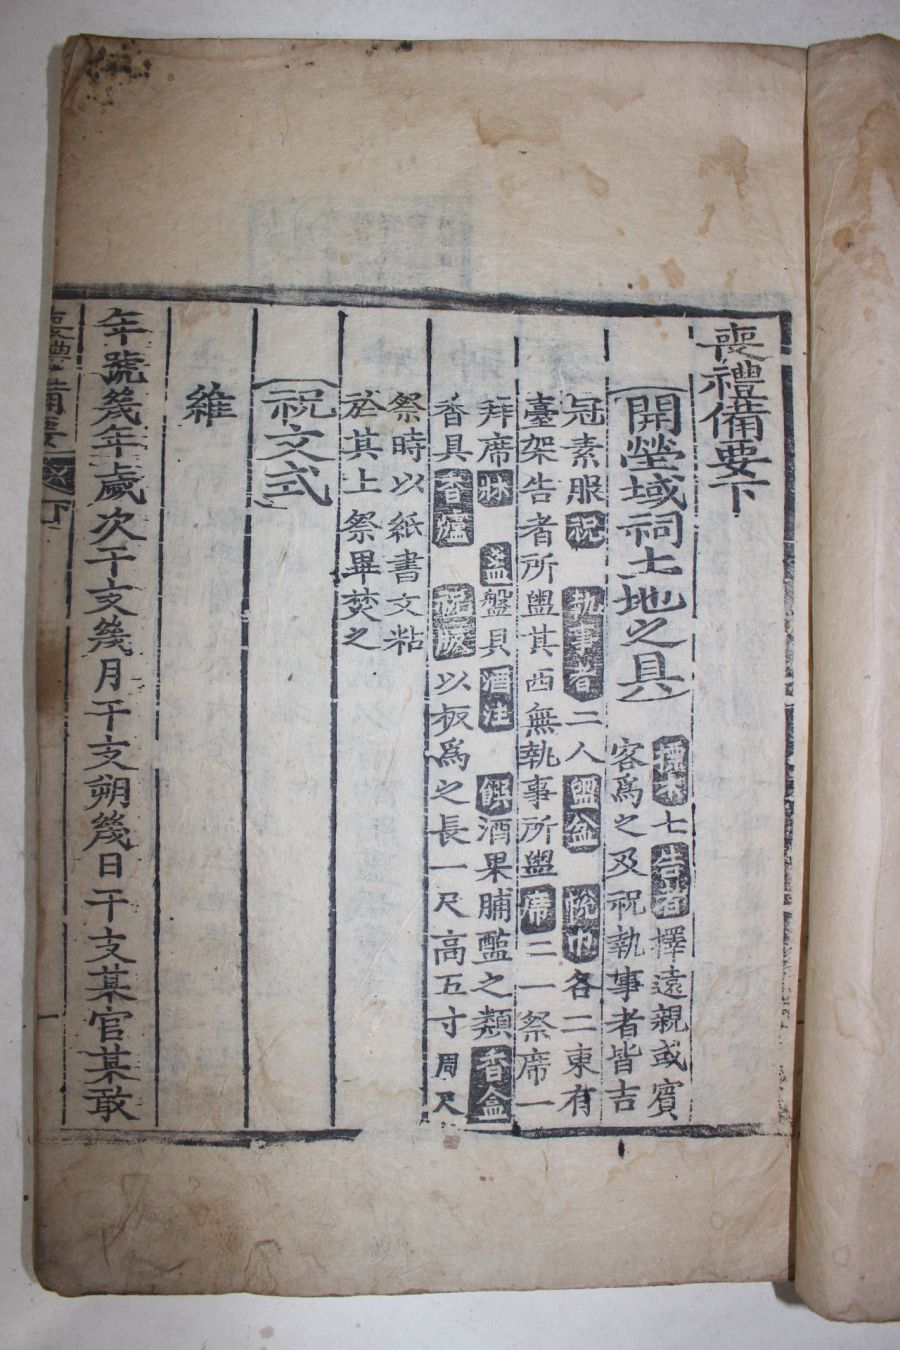 喪禮備要下
開塋域祠土地之具
標木七告者擇遠親或賓
客爲之及祝執事者皆吉
冠素服祝執事者二人盥盆帨巾各二東有
臺架告者所盥其西無執事所盥席二一祭席一
拜席牀盞盤具酒注饌酒果脯醢之類香盒
香具香爐祝版以板爲之長一尺高五寸周尺
祭時以紙書文粘
於其上祭畢焚之
祝文式
維
年號幾年歲次干支幾月干支朔幾日干支某官某敢
喪禮備要 下 一